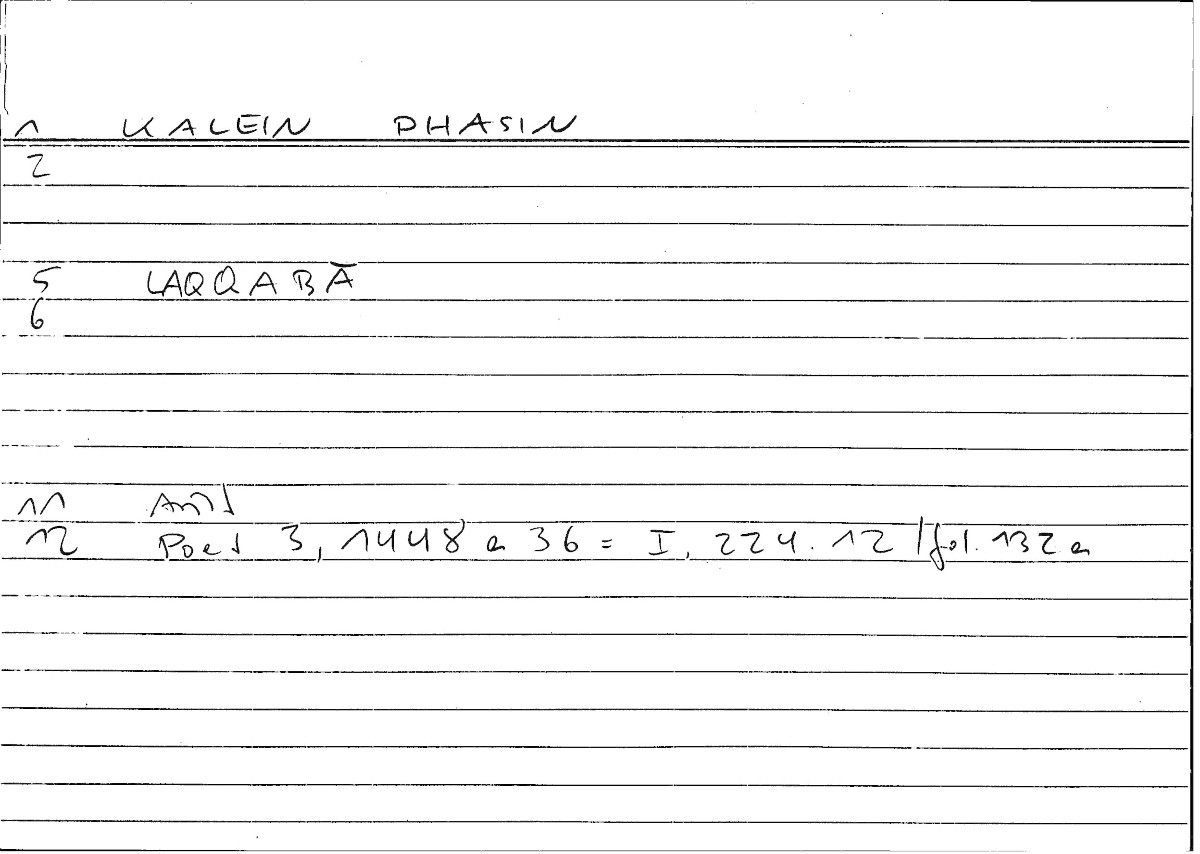 1 KALEIN PHASIN
2
5 LAQQABĀ
6
11 Arist
12 Poet 3, 1448 a 36 = I, 224.12 / fol. 132 a